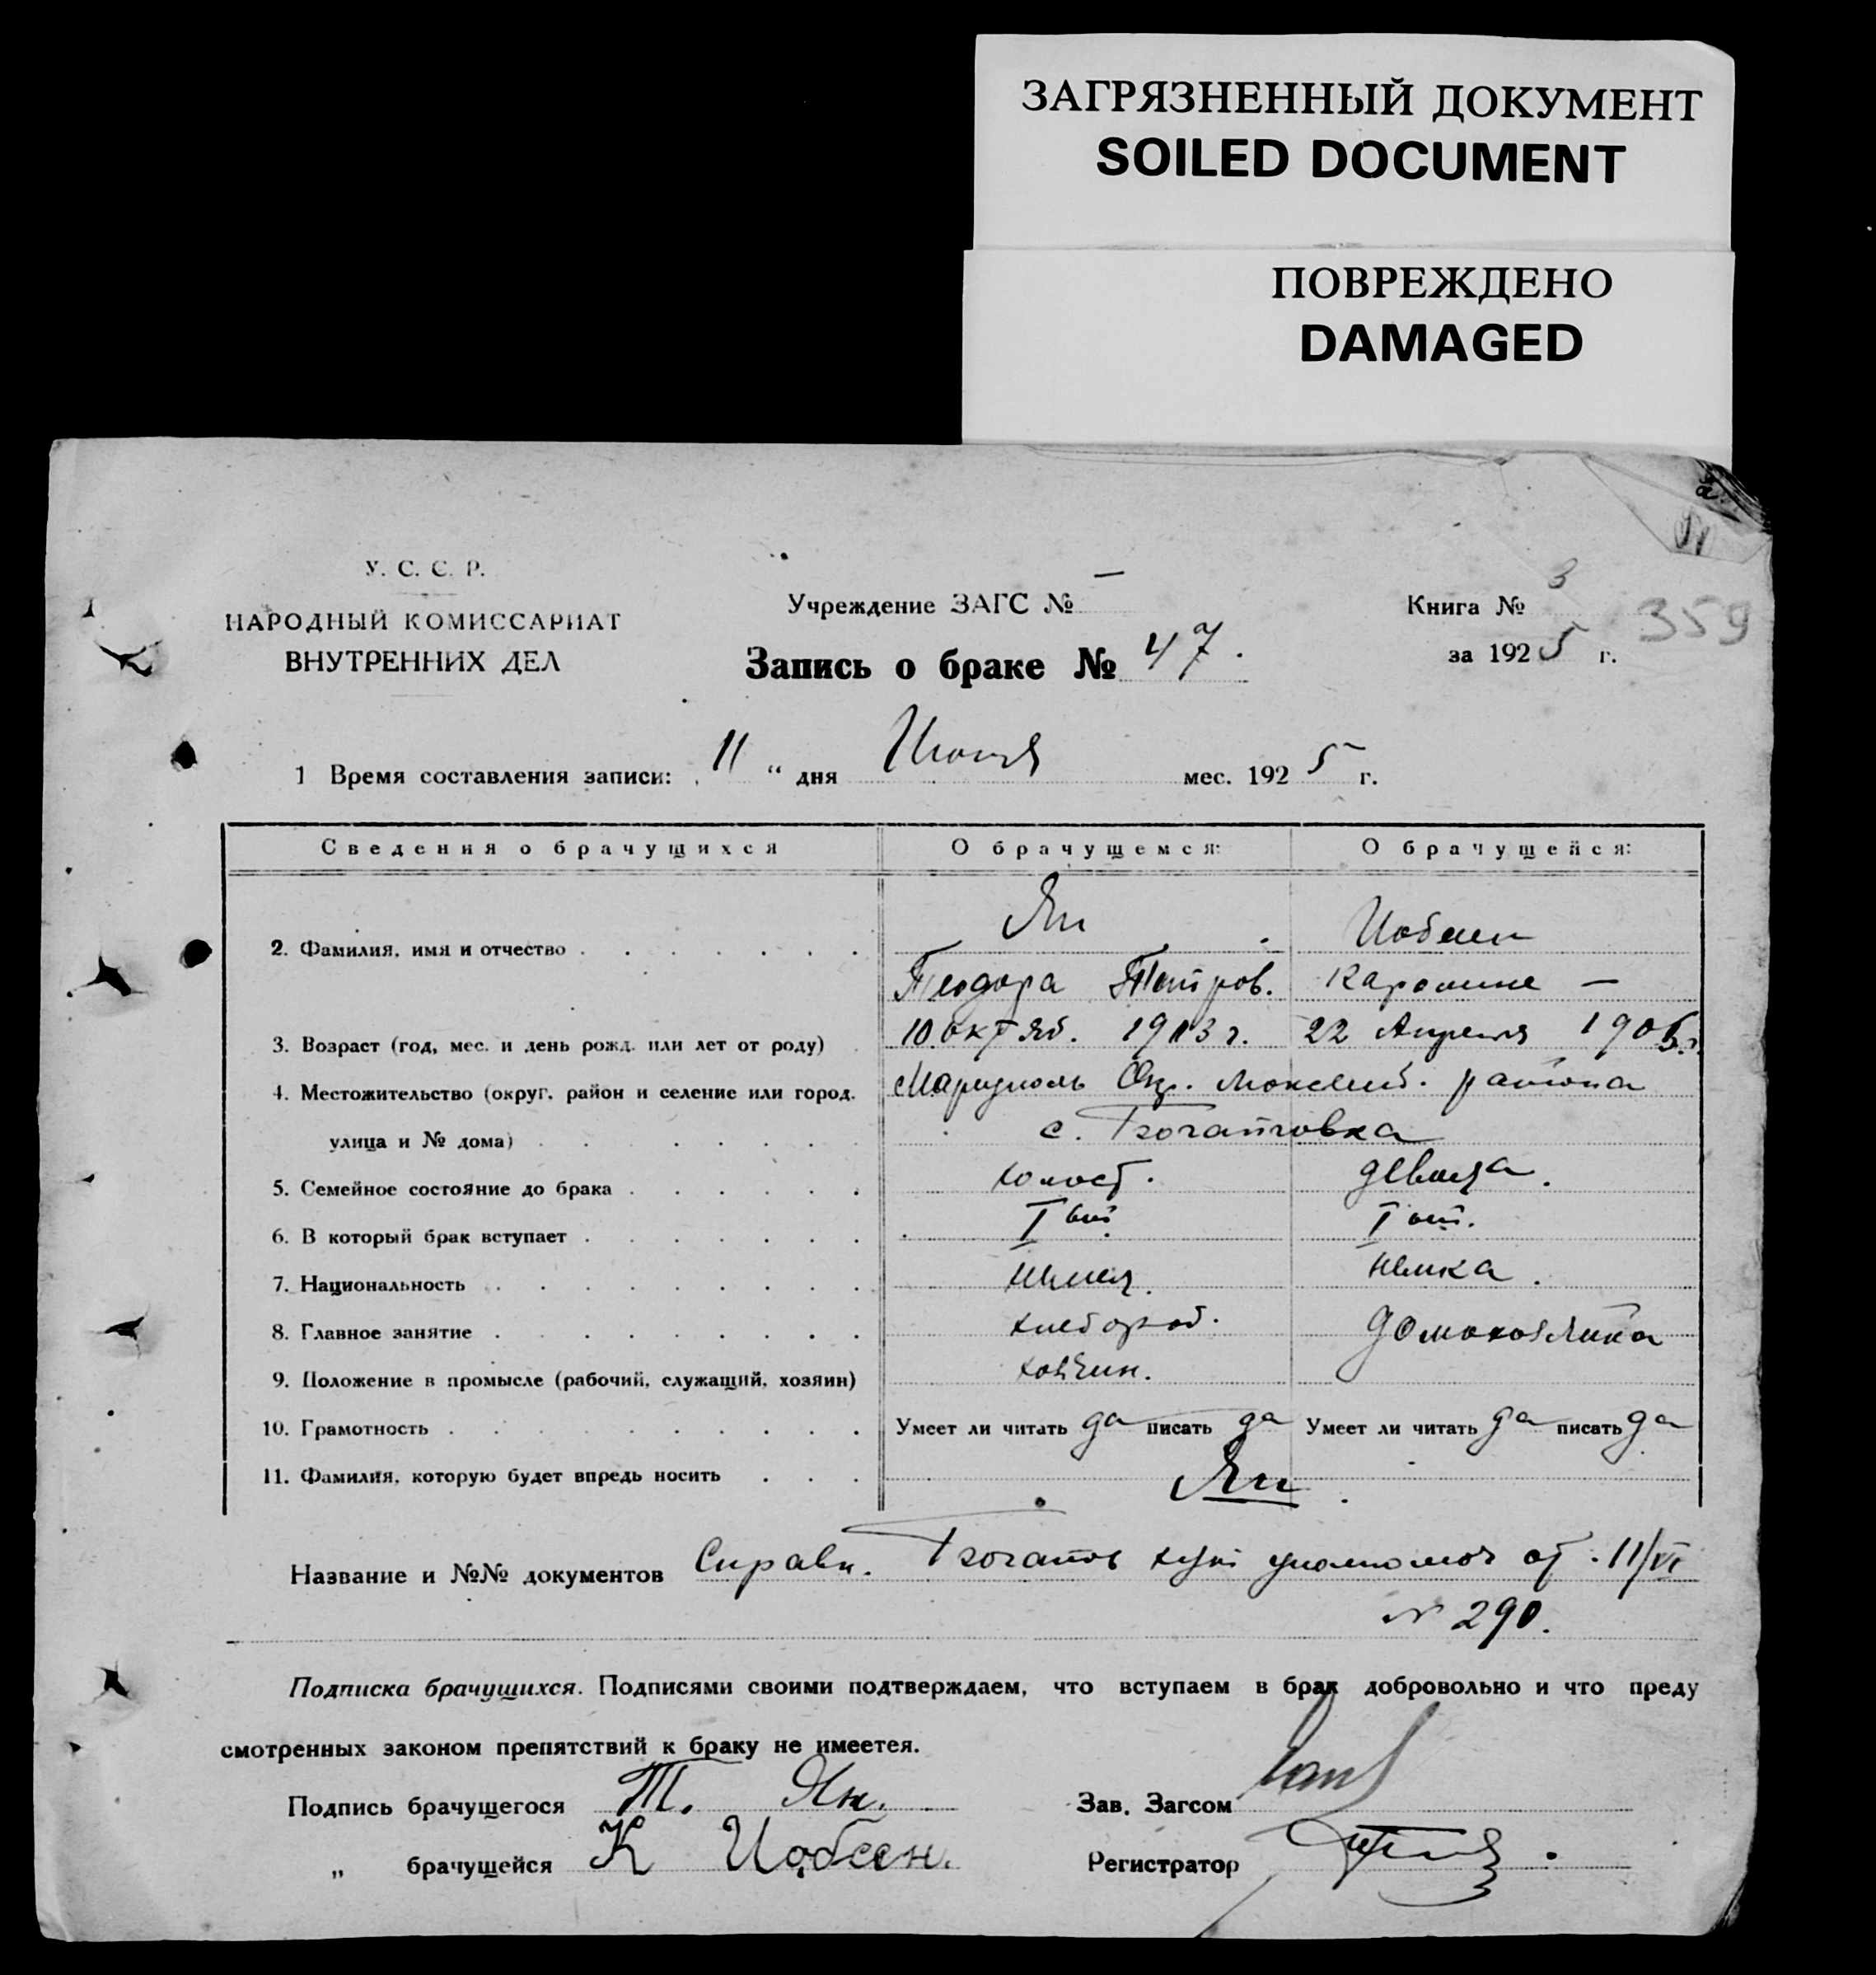 ЗАГРЯЗНЕННЫЙ ДОКУМЕНТ
SOILED DOCUMENT
ПОВРЕЖДЕНО
DAMAGED
У. С. С. Р.
НАРОДНЫЙ КОМИССАРИАТ
ВНУТРЕННИХ ДЕЛ
Учреждение ЗАГС № —
Запись о браке № 47.
Книга № 3
359
за 1925 г.
1 Время составления записи: 11 “ дня Июня мес. 1925 г.
Сведения о брачущихся О брачущемся: О брачущейся:
2. Фамилия, имя и отчество Ян
Теодора Петров. Каролине —
3. Возраст (год, мес. и день рожд. или лет от роду) 10 октяб. 1903 г. 22 Апреля 1905 г.
4. Местожительство (округ, район и селение или город, Мариуполь Окр. района
улица и № дома) с.
5. Семейное состояние до брака холост. девица.
6. В который брак вступает I вый I ый.
7. Национальность немец. немка.
8. Главное занятие хлебороб. домохозяйка
9. Положение в промысле (рабочий, служащий, хозяин) хозяин.
10. Грамотность Умеет ли читать да писать да Умеет ли читать да писать да
11. Фамилия, которую будет впредь носить Ян.
Название и №№ документов Справк. от 11/VI
№ 290.
Подписка брачущихся. Подписями своими подтверждаем, что вступаем в брак добровольно и что преду
смотренных законом препятствий к браку не имеетея.
Подпись брачущегося Т. Ян. Зав. Загсом
„ брачущейся К Регистратор